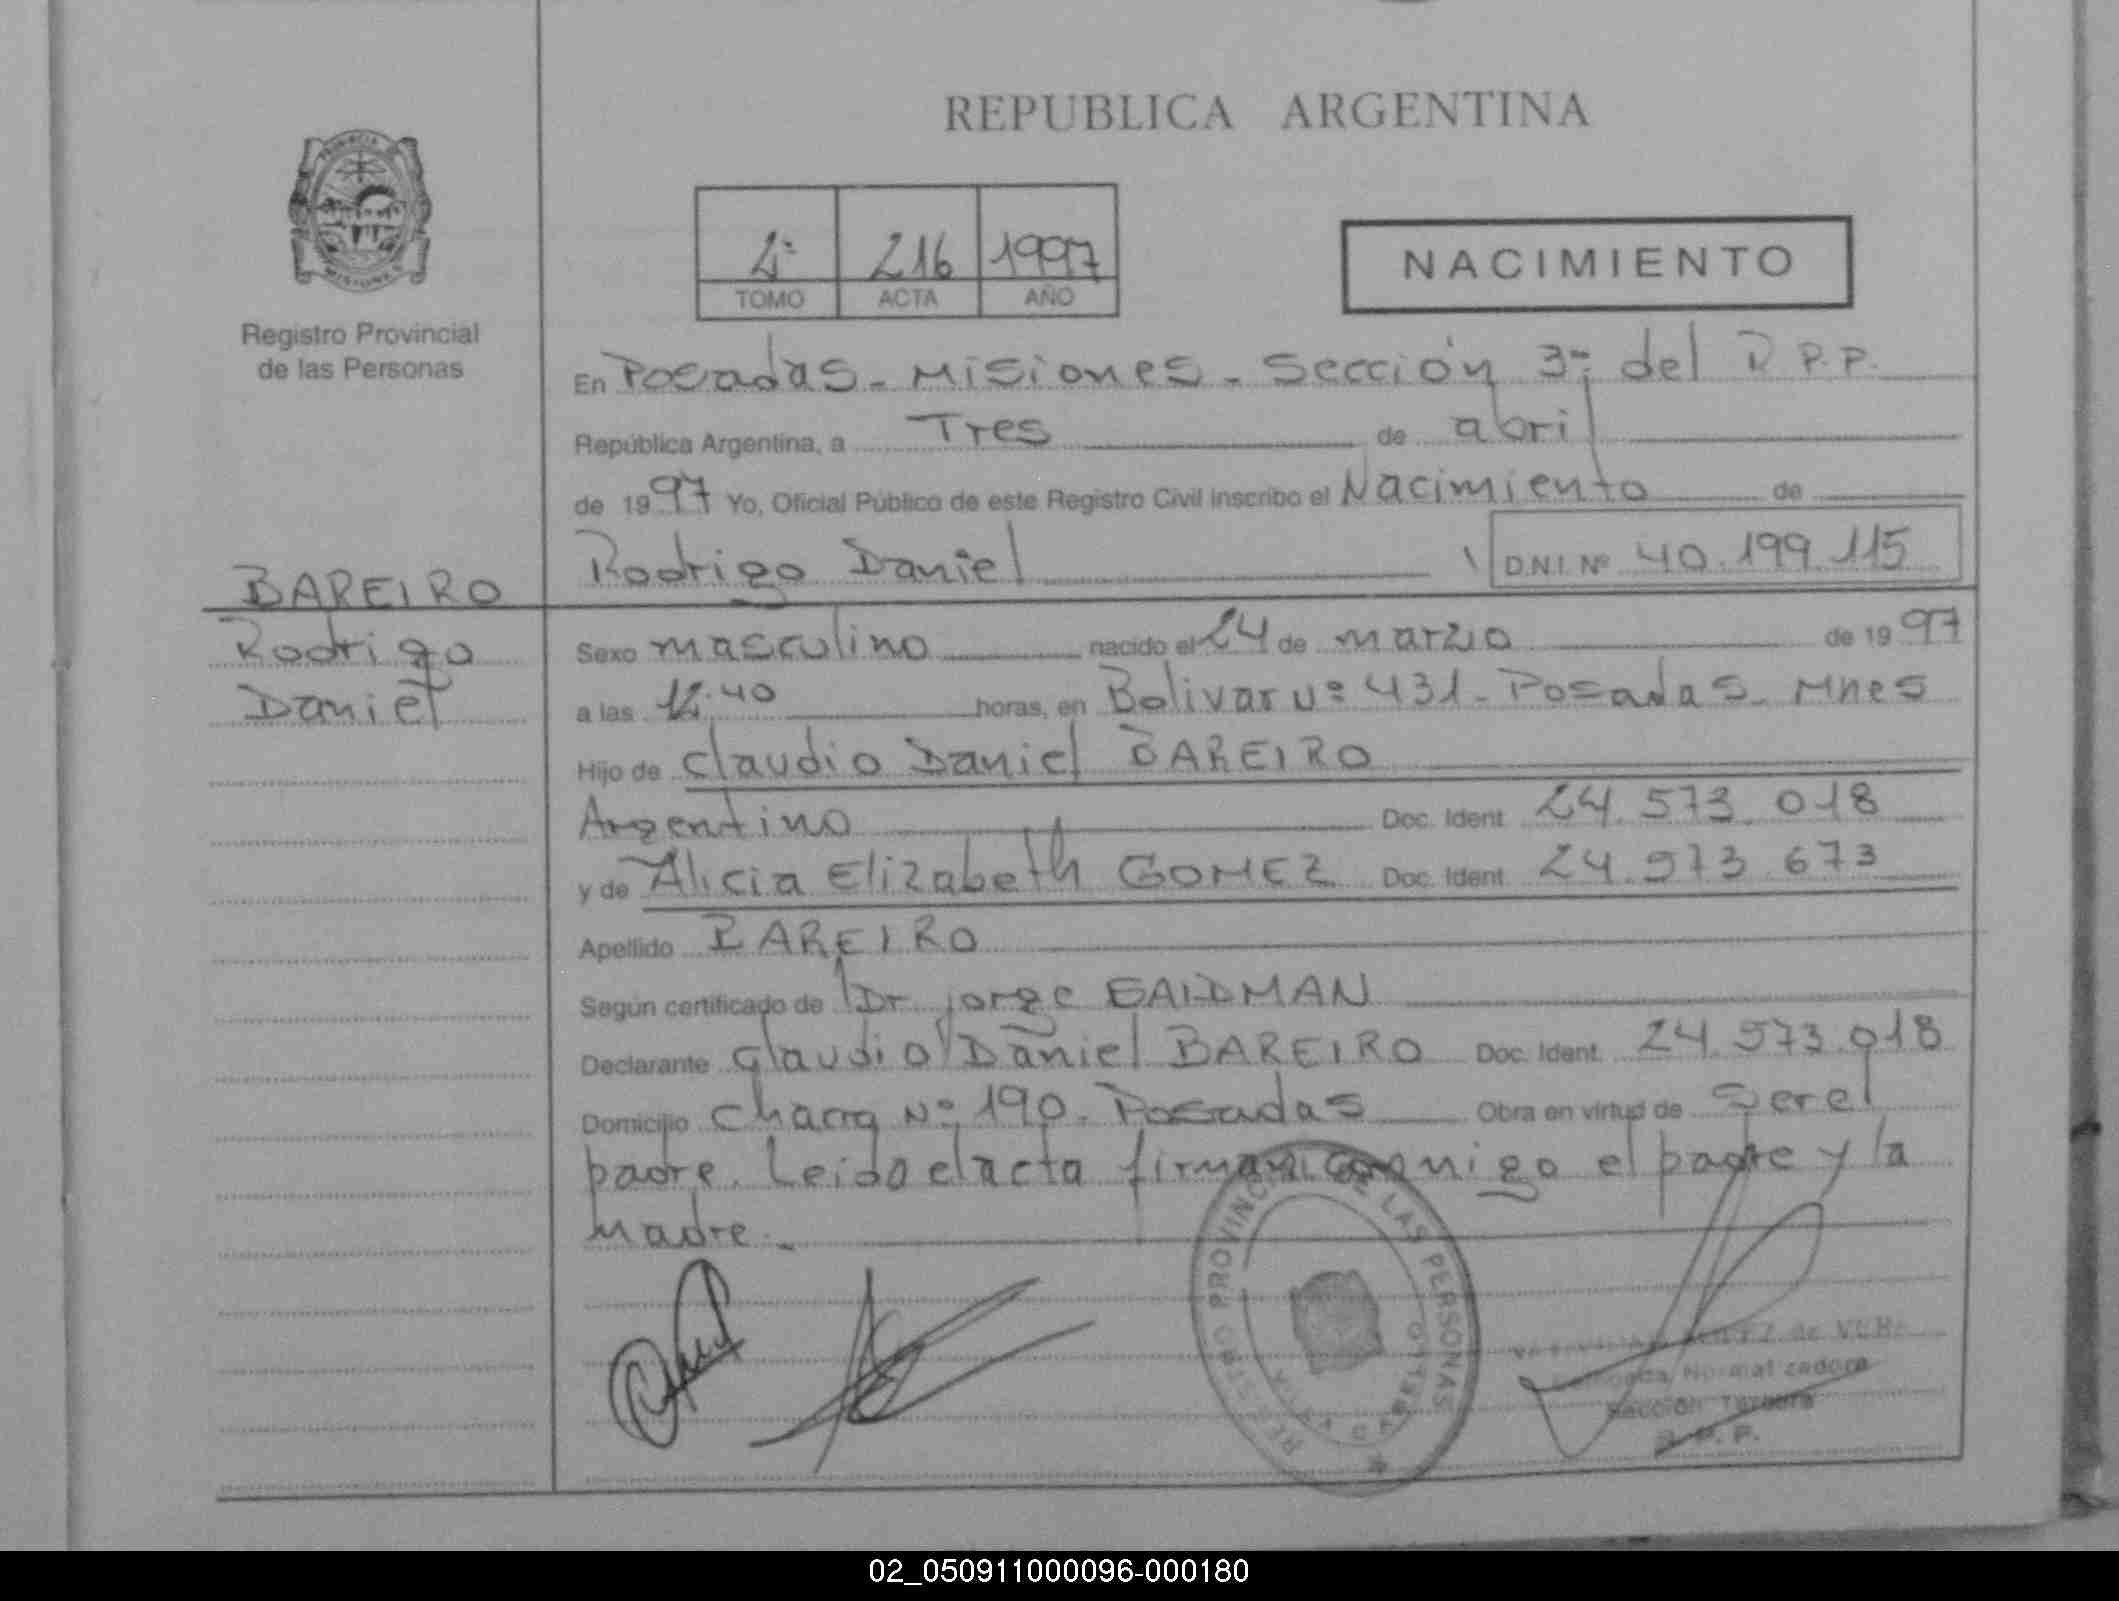 REPUBLICA ARGENTINA
PROVINCIA DE
MISIONES
Registro Provincial
de las Personas
216 1997
TOMO ACTA AÑO
NACIMIENTO
En Posadas - Misiones - Sección 3ª del R.P.P.
República Argentina, a Tres de abril
de 1997 Yo, Oficial Público de este Registro Civil inscribo el Nacimiento de
Rodrigo Daniel D.N.I. Nº 40.199.115
BAREIRO
Rodrigo
Daniel
Sexo masculino nacido el 24 de marzo de 1997
a las horas, en Bolivar Nº 431 - Posadas - Mnes
Hijo de Claudio Daniel BAREIRO
Argentino Doc. Ident. 24.573.018
y de Alicia Elizabeth GOMEZ Doc. Ident. 24.973.673
Apellido BAREIRO
Según certificado de Dr. Jorge
Declarante Claudio Daniel BAREIRO Doc. Ident. 24.573.018
Domicilio Chacra Nº 190. Posadas Obra en virtud de Ser el
padre. Leida el acta firman conmigo el padre y la
Madre.-
REGISTRO PROVINCIAL DE LAS PERSONAS
de VERA
Normalizadora
Sección Tercera
R.P.P.
02_050911000096-000180